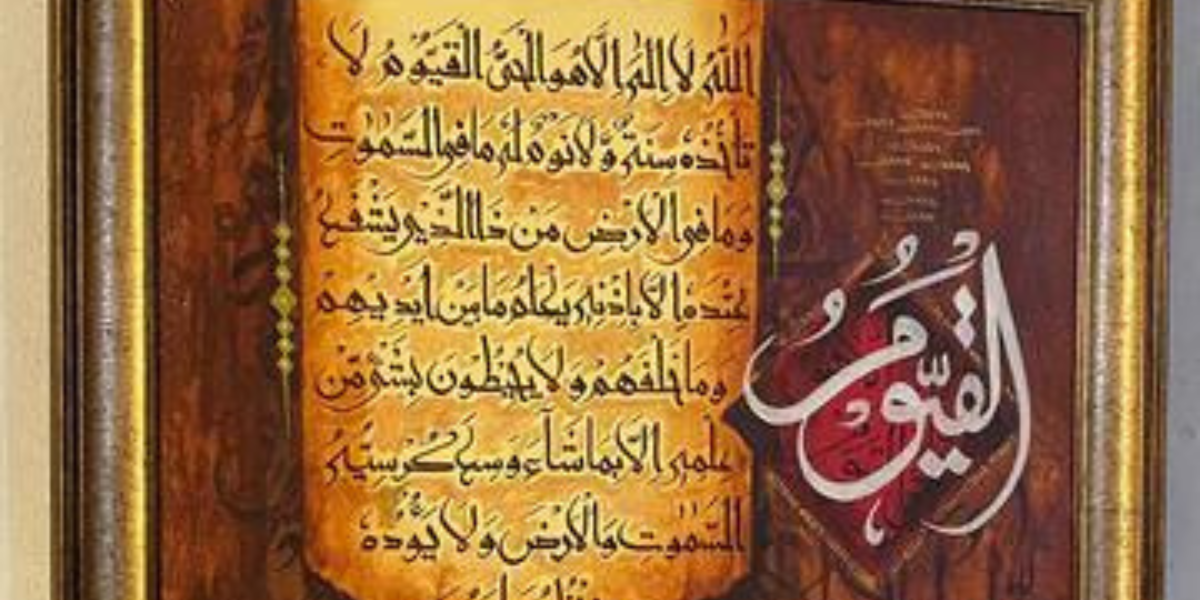 اَللّٰهُ لَا اِلٰهَ اِلَّا هُوَ الْحَىُّ الْقَيُّوْمُ لَا
تَأْخُذُهٗ سِنَةٌ وَّلَا نَوْمٌ لَهٗ مَا فِى السَّمٰوٰتِ
وَمَا فِى الْاَرْضِ مَنْ ذَا الَّذِىْ يَشْفَعُ
عِنْدَهٗ اِلَّا بِاِذْنِهٖ يَعْلَمُ مَا بَيْنَ اَيْدِيْهِمْ
وَمَا خَلْفَهُمْ وَلَا يُحِيْطُوْنَ بِشَىْءٍ مِّنْ
عِلْمِهٖ اِلَّا بِمَا شَآءَ وَسِعَ كُرْسِيُّهُ
السَّمٰوٰتِ وَالْاَرْضَ وَلَا يَؤُدُهٗ
الْقَيُّوْمُ